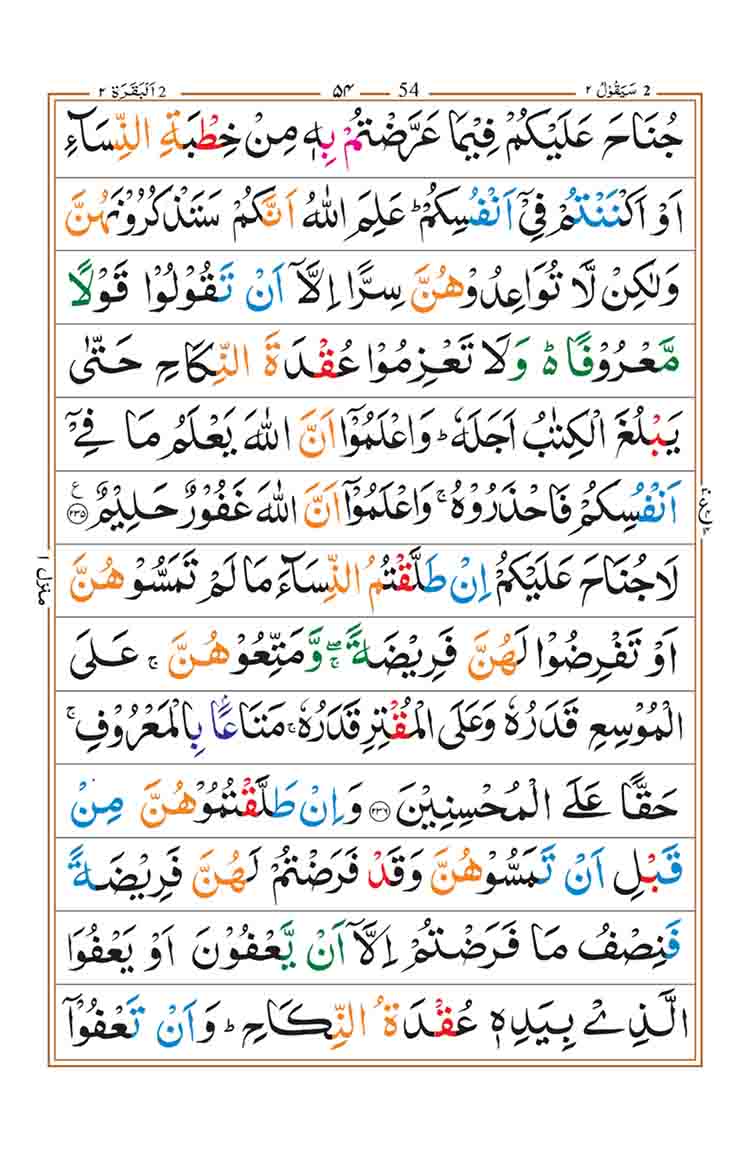 2 سَيَقُوْلُ ٢ 54 ۵۴ 2 اَلْبَقَرَة ٢
جُنَاحَ عَلَيْكُمْ فِيْمَا عَرَّضْتُمْ بِهٖ مِنْ خِطْبَةِ النِّسَآءِ
اَوْ اَكْنَنْتُمْ فِىْۤ اَنْفُسِكُمْ ؕ عَلِمَ اللّٰهُ اَنَّكُمْ سَتَذْكُرُوْنَهُنَّ
وَلٰكِنْ لَّا تُوَاعِدُوْهُنَّ سِرًّا اِلَّاۤ اَنْ تَقُوْلُوْا قَوْلًا
مَّعْرُوْفًا ؕ۬ وَلَا تَعْزِمُوْا عُقْدَةَ النِّكَاحِ حَتّٰى
يَبْلُغَ الْكِتٰبُ اَجَلَهٗ ؕ وَاعْلَمُوْۤا اَنَّ اللّٰهَ يَعْلَمُ مَا فِىْۤ
اَنْفُسِكُمْ فَاحْذَرُوْهُ ۚ وَاعْلَمُوْۤا اَنَّ اللّٰهَ غَفُوْرٌ حَلِيْمٌ ۧ‏ ٢٣٥
لَا جُنَاحَ عَلَيْكُمْ اِنْ طَلَّقْتُمُ النِّسَآءَ مَا لَمْ تَمَسُّوْهُنَّ
اَوْ تَفْرِضُوْا لَهُنَّ فَرِيْضَةً ۖۚ وَّمَتِّعُوْهُنَّ ۚ عَلَى
الْمُوْسِعِ قَدَرُهٗ وَعَلَى الْمُقْتِرِ قَدَرُهٗ ۚ مَتَاعًۢا بِالْمَعْرُوْفِ ۚ
حَقًّا عَلَى الْمُحْسِنِيْنَ ٢٣٦ وَاِنْ طَلَّقْتُمُوْهُنَّ مِنْ
قَبْلِ اَنْ تَمَسُّوْهُنَّ وَقَدْ فَرَضْتُمْ لَهُنَّ فَرِيْضَةً
فَنِصْفُ مَا فَرَضْتُمْ اِلَّاۤ اَنْ يَّعْفُوْنَ اَوْ يَعْفُوَا
الَّذِىْ بِيَدِهٖ عُقْدَةُ النِّكَاحِ ؕ وَاَنْ تَعْفُوْۤا
منزل ١